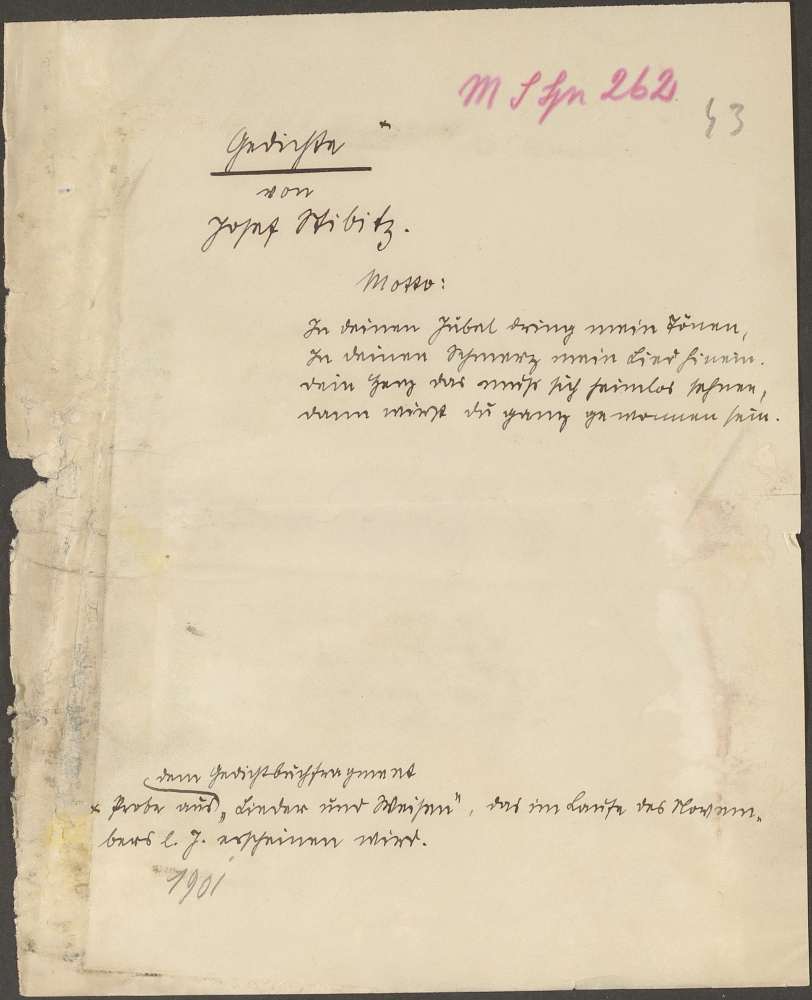 M S Spr 262
43
Gedichte *
von
Josef Stibitz.
Motto:
In deinen Jubel dring mein Tönen,
In deinen Schmerz mein Lied hinein.
Dein Herz das muß sich heimlos sehnen,
dann wirst du ganz gewonnen sein.
dem Gedichtbuchfragment
* Probe aus „Lieder und Weisen", das im Laufe des Novem-
bers l. J. erscheinen wird.
1901